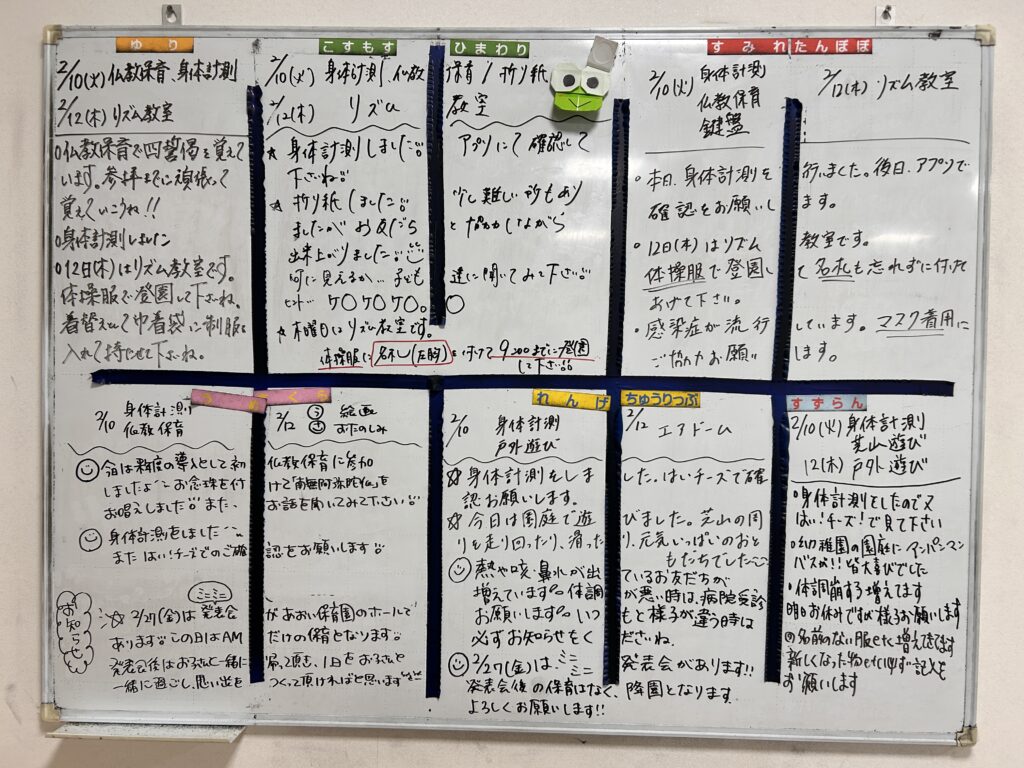 ゆり
2/10(火)仏教保育、身体計測
2/12(木)リズム教室
○仏教保育で四誓偈を覚えて
います。参拝までに頑張って
覚えていこうね!!
○身体計測しました
○12日(木)はリズム教室です。
体操服で登園して下さいね。
着替えとして巾着袋に制服を
入れて持たせて下さいね。
こすもす ひまわり
2/10(火) 身体計測、仏教保育/折り紙
2/12(木) リズム 教室
★ 身体計測しました アプリにて確認して
下さいね
★ 折り紙しました 少し難しい所もあり
ましたがお友だちと協力しながら
出来上がりました
何に見えるか、子ども達に聞いてみて下さい
ヒント ケ○ケ○ケ○。○
★木曜日はリズム教室です。
体操服に名札(左胸)を付けて9:00までに登園
して下さい
すみれ たんぽぽ
2/10(火) 身体計測
仏教保育
鍵盤
2/12(木) リズム教室
・本日、身体計測を行いました。後日、アプリで
確認をお願いします。
・12日(木)はリズム教室です。
体操服で登園して名札も忘れずに付けて
あげて下さい。
・感染症が流行しています。マスク着用に
ご協力お願いします。
2/10 身体計測
仏教保育
2/12 絵画
おたのしみ
今日は数度の導入として初 仏教保育に参加
しましたよ お念珠を付けて「南無阿弥陀仏」を
お唱えしました また、お話を聞いてみて下さい
身体計測をしました
またはい!チーズでのご確認をお願いします
お知らせ
☆2/27(金)はミニミニ発表会があおい保育園のホールで
あります この日はAMだけの保育となります
発表会後はお子さんと一緒に帰って頂き、1日をお子さんと
一緒に過ごし、思い出をつくって頂ければと思います
れんげ ちゅうりっぷ
2/10 身体計測
戸外遊び
2/12 エアドーム
☆身体計測をしました。はいチーズで確
認お願いします。
☆今日は園庭で遊びました。芝山の周
りを走り回ったり、滑ったり、元気いっぱいのおと
もだちでした
熱や咳・鼻水が出ているお友だちが
増えています 体調が悪い時は、病院受診
お願いします いつもと様子が違う時は
必ずお知らせくださいね。
2/27(金)は、ミニミニ発表会があります!!
発表会後の保育はなく、降園となります
よろしくお願いします!!
すずらん
2/10(火)身体計測
芝山遊び
12(木)戸外遊び
・身体計測をしたので又
はい!チーズ!で見て下さい
・幼稚園の園庭にアンパンマン
バスが!!皆大喜びでした
・体調崩す子増えてます
明日お休みですが様子お願いします
の名前のない服とたに増えてきてます
新しくなった物とたに必ず記入を
お願いします